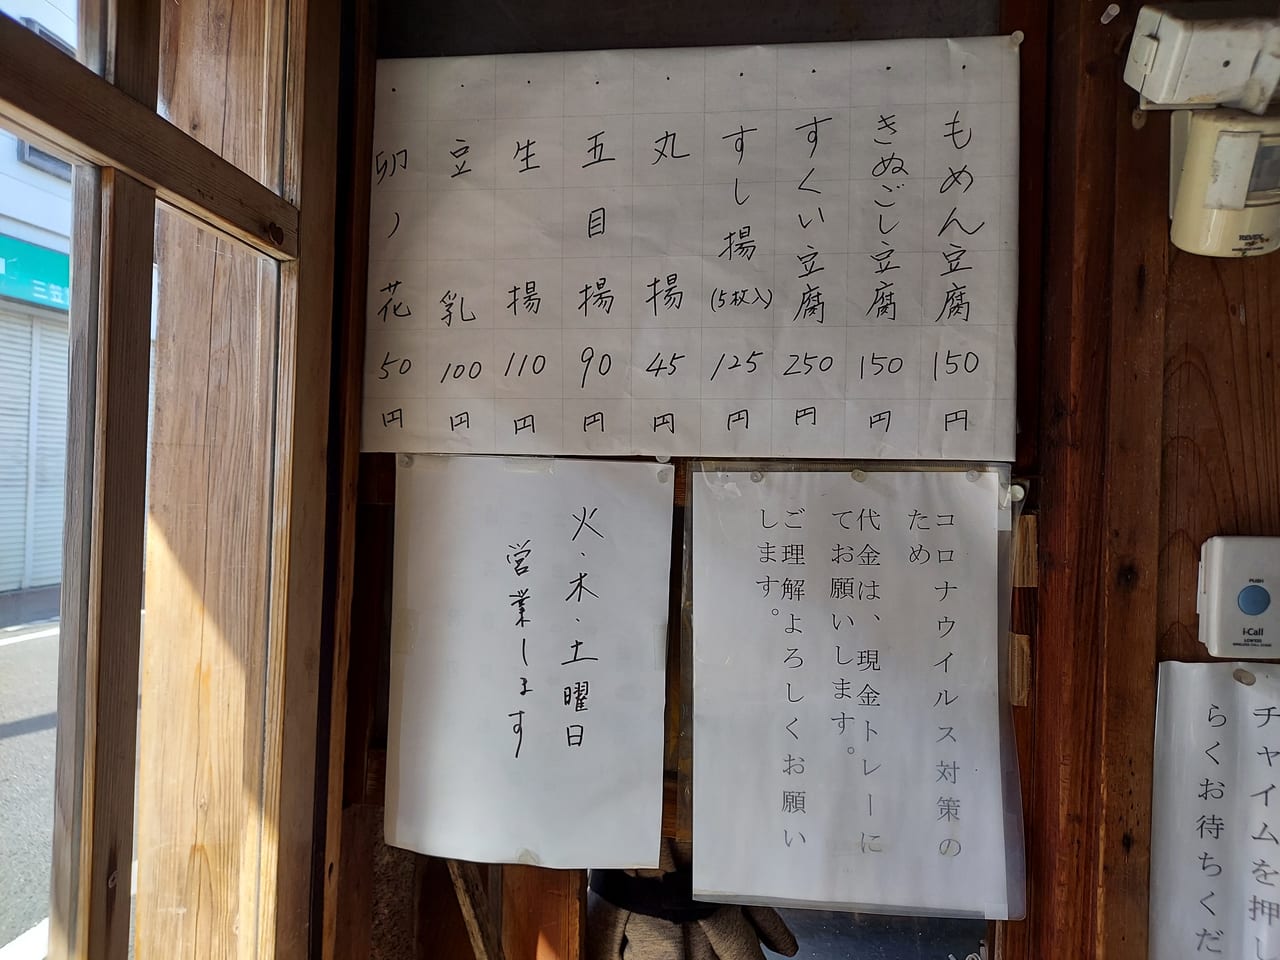 もめん豆腐 150円
きぬごし豆腐 150円
すくい豆腐 250円
すし揚(5枚入) 125円
丸揚 45円
五目揚 90円
生揚 110円
豆乳 100円
卯ノ花 50円
コロナウイルス対策の
ため
代金は、現金トレーに
てお願いします。
ご理解よろしくお願い
します。
火・木・土曜日
営業します
チャイムを押し
らくお待ちくだ
PUSH
i-Call